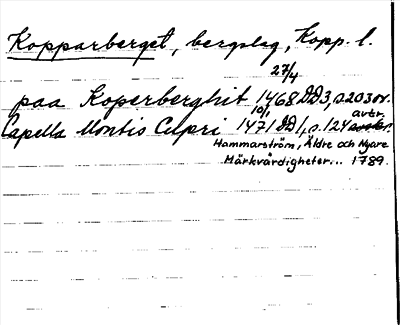 Kopparberget, bergslag, Kopp. l.
27/4
paa Koperberghit 1468 DD3, s.203 or.
10/1 avtr.
Capella Montis Cupri 1471 DD1, s.124
Hammarström, Äldre och Nyare
Märkvärdigheter... 1789.